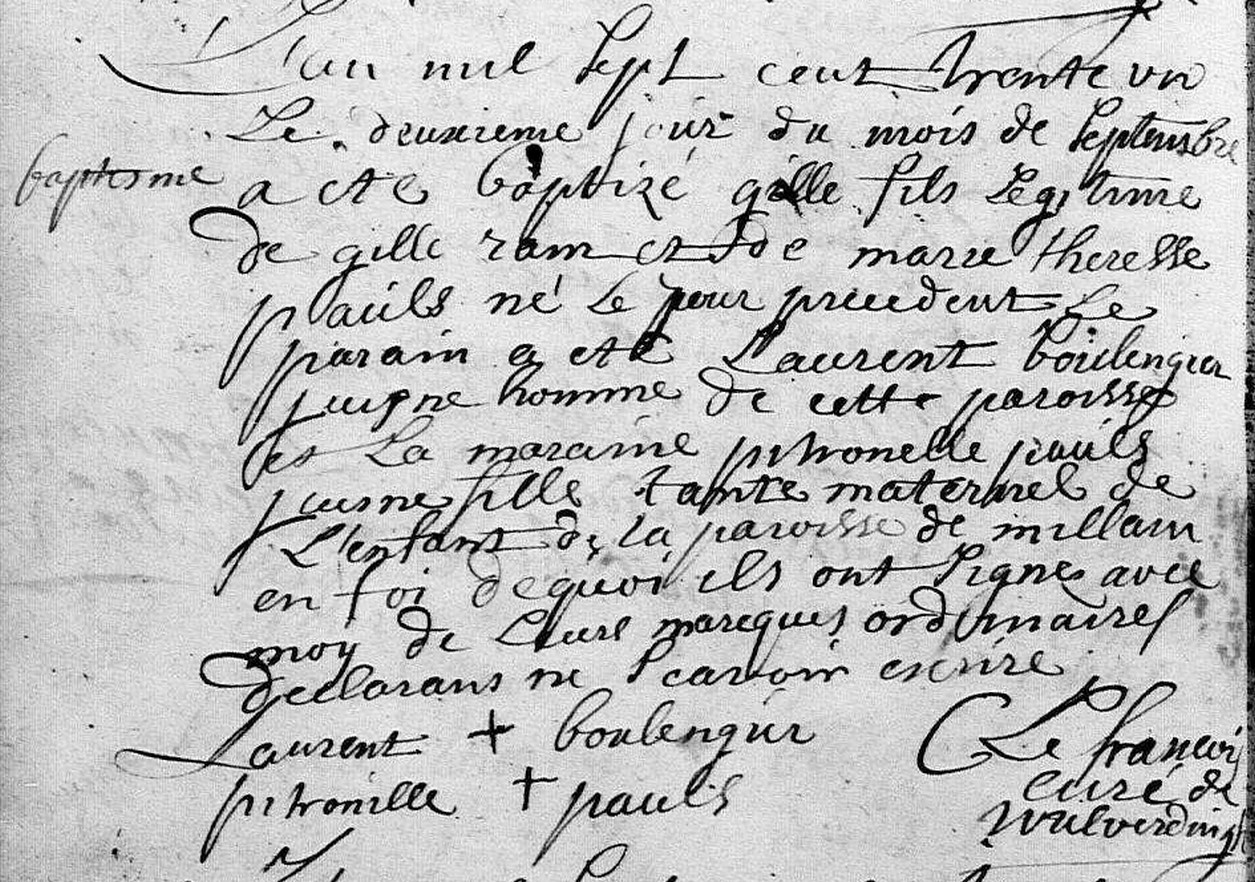 L'an mil sept cent trente un
Le deuxieme jour du mois de septembre
baptesme
a eté baptizé gille fils legitime
de gille ram et de marie theresse
paúls né le jour precedent Le
parain a eté Laurent boúlengier
jeusne homme de cette paroisse
et La maraine pitronelle paúls
jeusne fille tante maternel de
L'enfant de la paroisse de millam
en foi de quoi ils ont signes avec
moy de Leurs marques ordinaires
declarans ne scavoir escrire
Laurent + boulengier
pitronille + pauls
C Le francois
curé de
wulverdingh